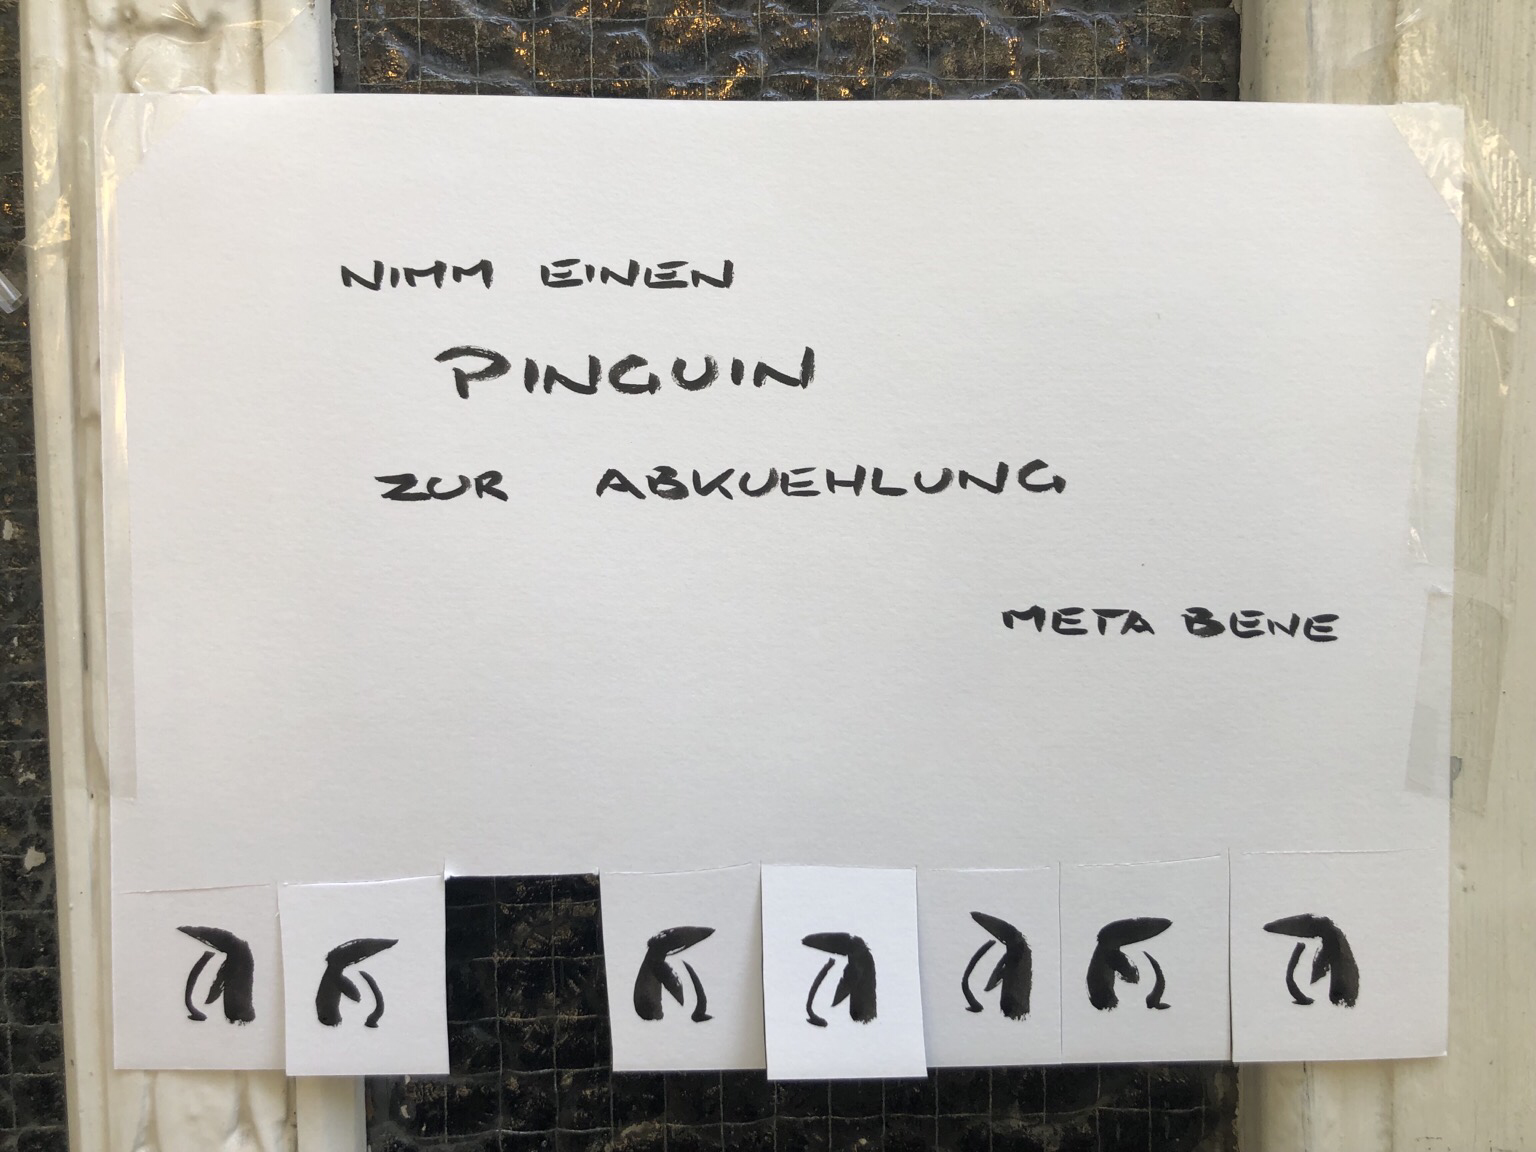 NIMM EINEN
PINGUIN
ZUR ABKUEHLUNG
META BENE